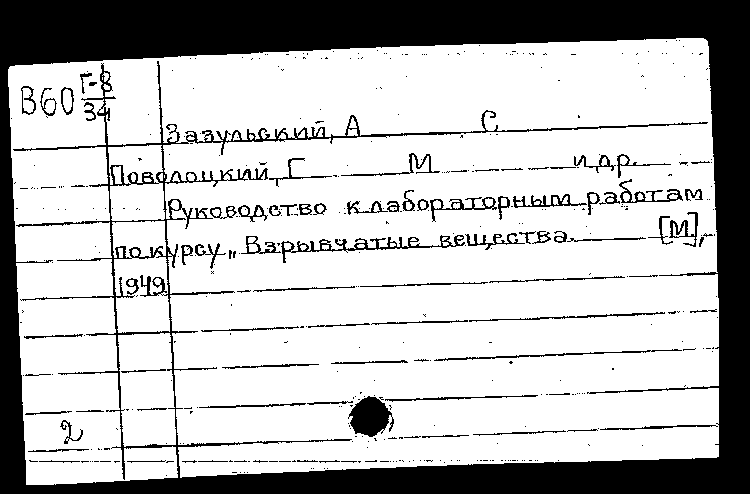 В60 Г-8
34
Зазульский, А С.
Поволоцкий, Г М и др.
Руководство к лабораторным работам
по курсу „Взрывчатые вещества. [М],
1949
2